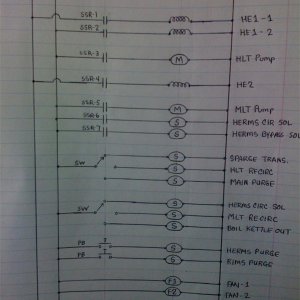 SSR-1 HE1-1
SSR-2 HE1-2
SSR-3 M HLT PUMP
SSR-4 HE2
SSR-5 M MLT PUMP
SSR-6 S HERMS CIR SOL
SSR-7 S HERMS BYPASS SOL
S SPARGE TRANS.
SW S HLT RECIRC
S MAIN PURGE
S HERMS CIRC SOL
SW S MLT RECIRC
S BOIL KETTLE OUT
PB S HERMS PURGE
PB S RIMS PURGE
F1 FAN-1
F2 FAN-2